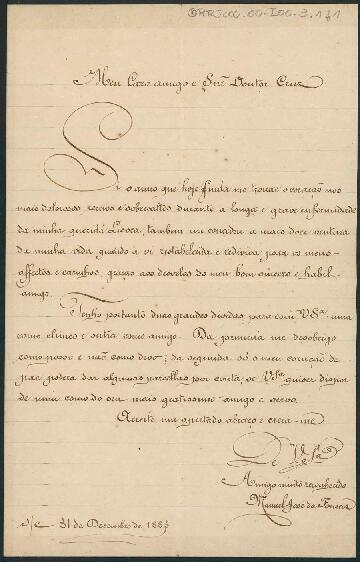 Meu Caro amigo e Snr. Doutor Cruz
Se o anno que hoje finda me trouxe o coração nos
mais dolorosos receios e sobresaltos durante a longa e grave enfermidade
da minha querida Lussa, tambem me concedeu a mais doce ventura
da minha vida quando a vi restabelecida e rediviva para os meus
affectos e carinhos, graças aos desvelos do meu bom sincero e habil
amigo.
Tenho portanto duas grandes dividas para com VSª, uma
como clinico e outra como amigo. Da primeira me desobrigo
como posso e não como devo; da segunda só o meu coração de
pae poderá dar algumas por conta, se VSª quizer dispor
de mim como do seu mais gratissimo amigo e servo.
Acceite um apertado abraço e creia-me
De VSª
Amigo muito reconhecido
Manuel José da Fonseca
S/C 31 de Dezembro de 1885